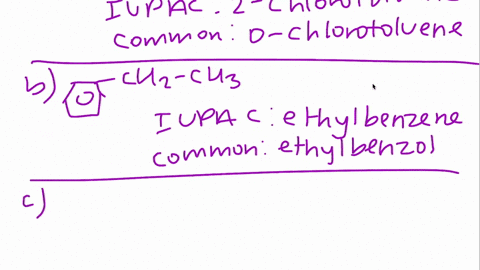 IUPAC: 2-chlorotoluene
common: o-chlorotoluene
b) -CH2-CH3
IUPAC: ethylbenzene
common: ethylbenzol
c)